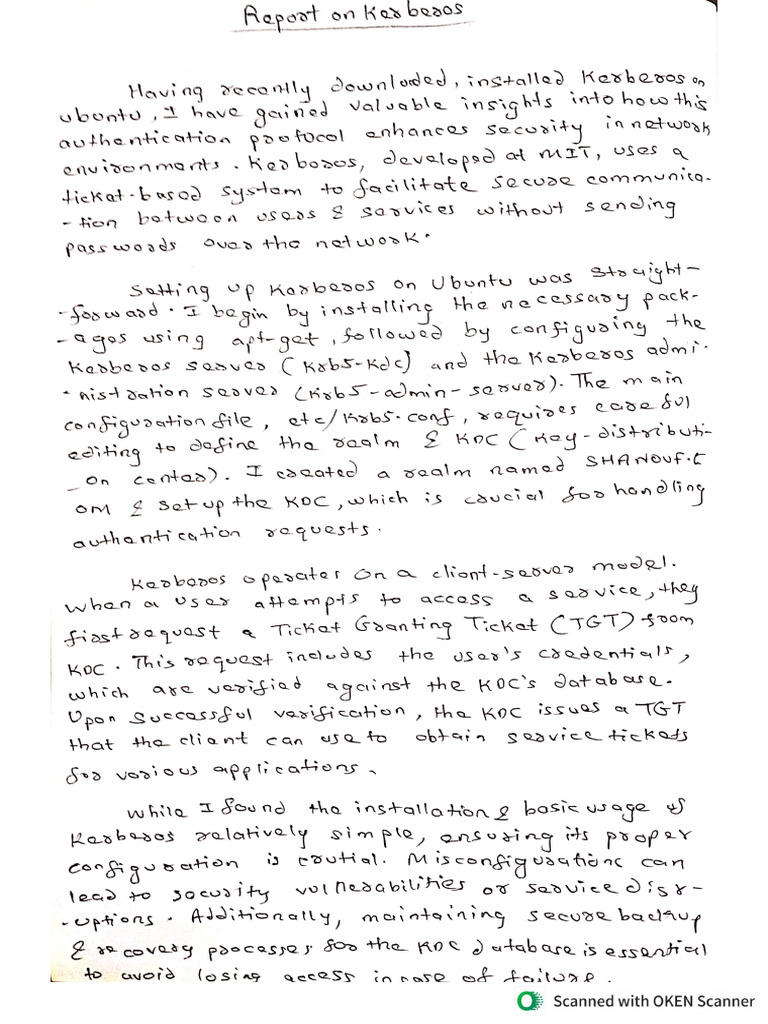 Report on Kerberos
Having recently downloded, installed Kerberos on
ubuntu, I have gained valuable insights into how this
authentication protocol enhances security in network
environments. Kerboros, developed at MIT, uses a
ticket-based system to facilitate secure communica-
-tion between users & services without sending
passwords over the network.
Setting up Kerberos on Ubuntu was straight-
-forward. I begin by installing the necessary pack-
-ages using apt-get, followed by configuring the
Kerberos server (Krb5-Kdc) and the Kerberos admi-
-nistration server (Krb5-admin-server). The main
configuration file, etc/Krb5.conf, requires careful
editing to define the realm & KDC (Key-distributi-
-on center). I created a realm named SHANOUF.C
OM & set up the KDC, which is crucial for handling
authentication requests.
Kerberos operates on a client-server model.
When a user attempts to access a service, they
first request a Ticket Granting Ticket (TGT) from
KDC. This request includes the user's credentials,
which are verified against the KDC's database.
Upon successful verification, the KDC issues a TGT
that the client can use to obtain service tickets
for various applications.
While I found the installation & basic usage of
Kerberos relatively simple, ensuring its proper
configuration is crutial. Misconfigurations can
lead to security vulnerabilities or service disr-
-uptions. Additionally, maintaining secure backup
& recovery processes for the KDC database is essential
to avoid losing access in case of failure.
Scanned with OKEN Scanner